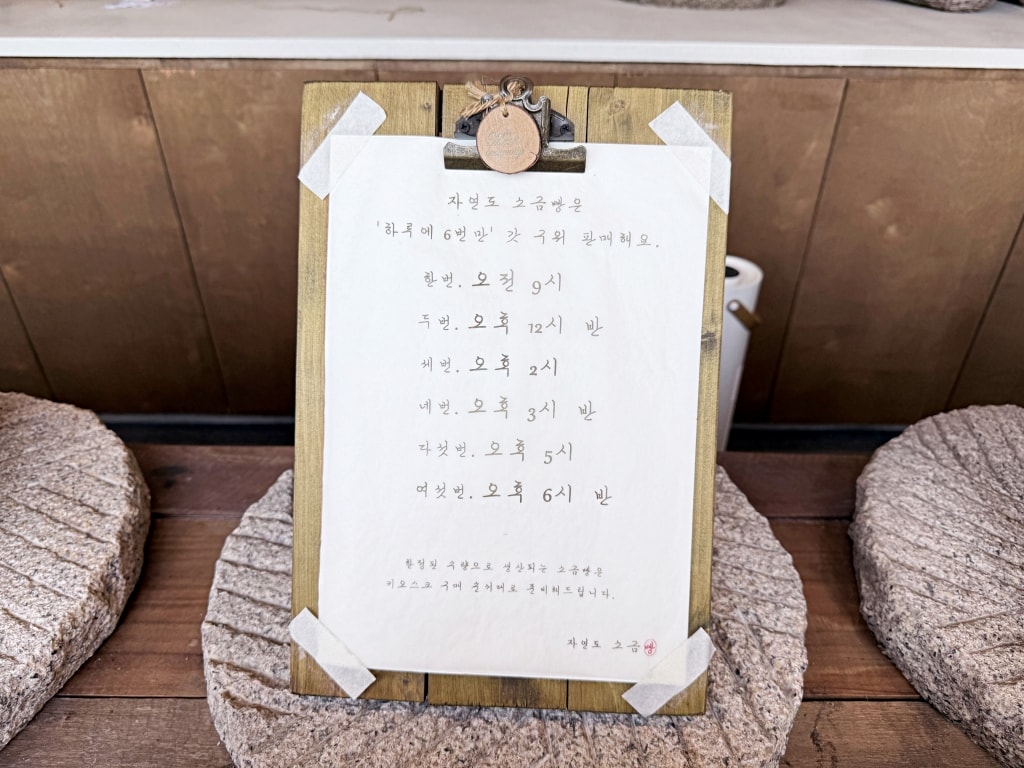 자연도 소금빵은
'하루에 6번만' 갓 구워 판매해요.
한번. 오전 9시
두번. 오후 12시 반
세번. 오후 2시
네번. 오후 3시 반
다섯번. 오후 5시
여섯번. 오후 6시 반
한정된 수량으로 생산되는 소금빵은
키오스크 구매 순서대로 준비해드립니다.
자연도 소금빵